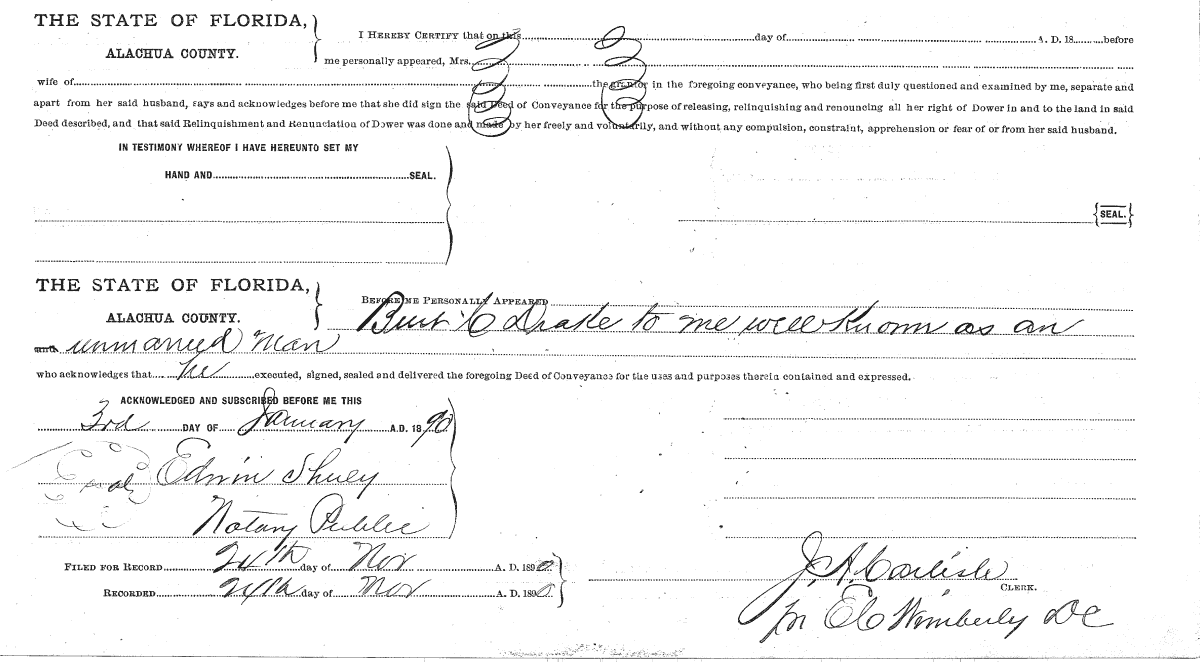 THE STATE OF FLORIDA,
ALACHUA COUNTY.
I HEREBY CERTIFY that on this day of A. D. 18 before
me personally appeared, Mrs.
wife of the grantor in the foregoing conveyance, who being first duly questioned and examined by me, separate and
apart from her said husband, says and acknowledges before me that she did sign the said Deed of Conveyance for the purpose of releasing, relinquishing and renouncing all her right of Dower in and to the land in said
Deed described, and that said Relinquishment and Renunciation of Dower was done and made by her freely and voluntarily, and without any compulsion, constraint, apprehension or fear of or from her said husband.
IN TESTIMONY WHEREOF I HAVE HEREUNTO SET MY
HAND AND SEAL.
SEAL.
THE STATE OF FLORIDA,
ALACHUA COUNTY.
BEFORE ME PERSONALLY APPEARED
Burt C Drake to me well known as an
and unmarried man
who acknowledges that he executed, signed, sealed and delivered the foregoing Deed of Conveyance for the uses and purposes therein contained and expressed.
ACKNOWLEDGED AND SUBSCRIBED BEFORE ME THIS
3rd DAY OF January A.D. 1890
Seal Edwin Shuey
Notary Public
FILED FOR RECORD 24th day of Nov A. D. 1890
RECORDED 24th day of Nov A. D. 1890
J. A. Carlisle
CLERK.
pr E C Wimberly DC